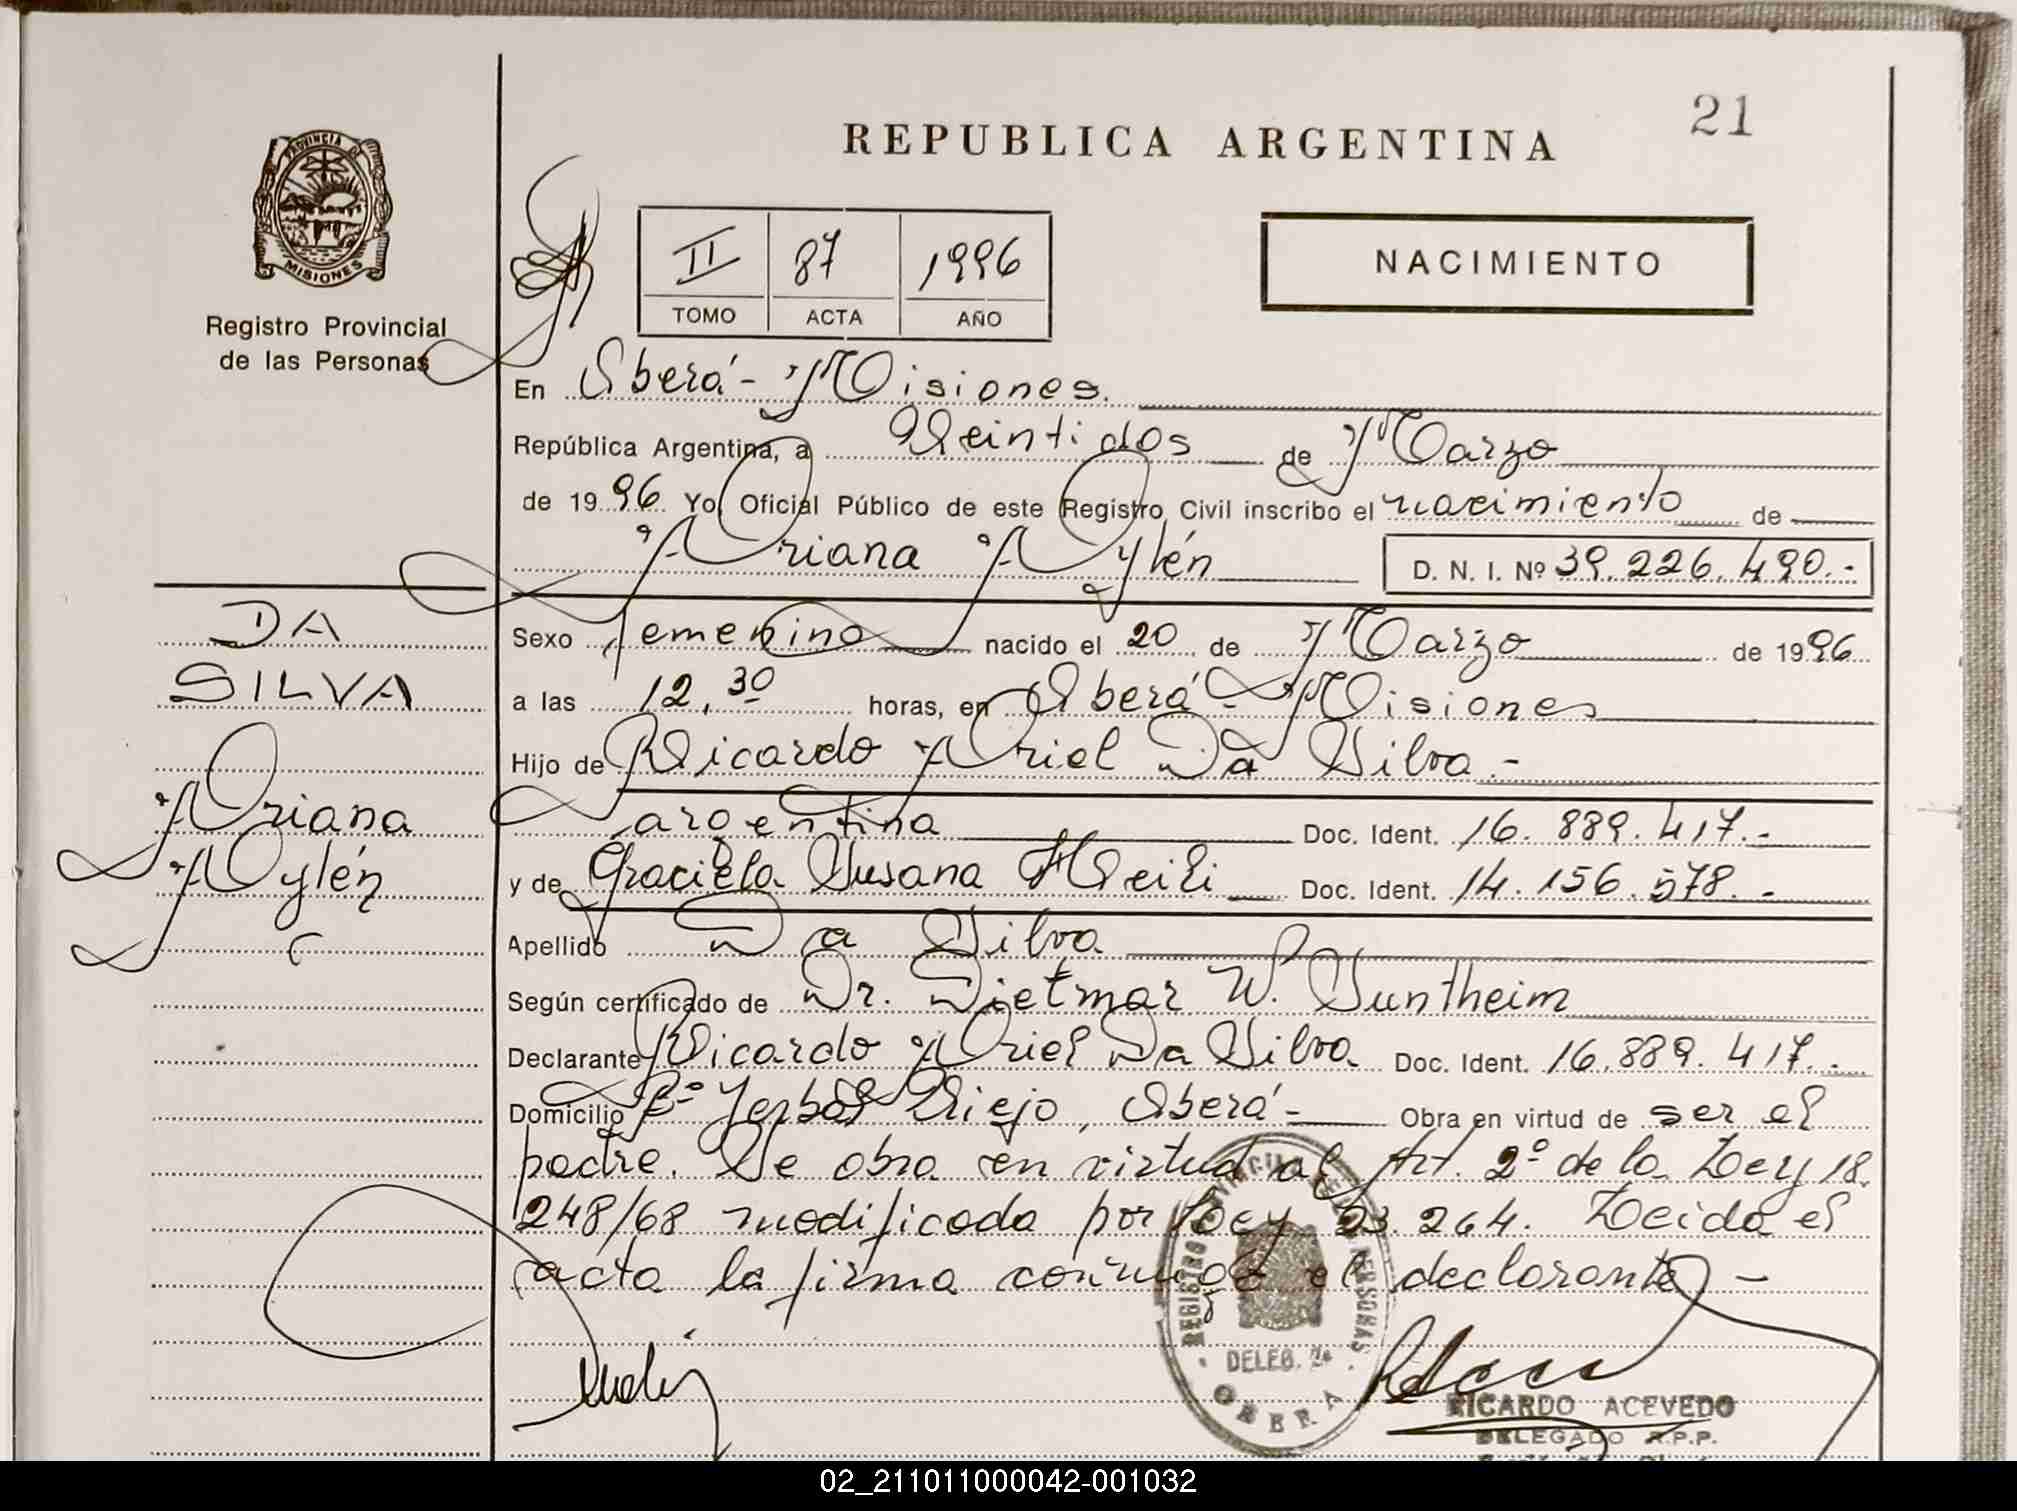 21
REPUBLICA ARGENTINA
PROVINCIA DE
MISIONES
Registro Provincial
de las Personas
II 87 1996
TOMO ACTA AÑO
NACIMIENTO
En Oberá - Misiones.
República Argentina, a Veintidos de Marzo
de 1996 Yo, Oficial Público de este Registro Civil inscribo el nacimiento de
Ariana Aylén D. N. I. Nº 39.226.490.-
DA
SILVA
Ariana
Aylén
Sexo femenino nacido el 20 de Marzo de 1996
a las 12,30 horas, en Oberá - Misiones
Hijo de Ricardo Ariel Da Silva.-
argentina Doc. Ident. 16.889.417.-
y de Graciela Susana Doc. Ident. 14.156.578.-
Apellido Da Silva
Según certificado de Dr. Dietmar W. Suntheim
Declarante Ricardo Ariel Da Silva Doc. Ident. 16.889.417.-
Domicilio Bº Yerbal Viejo, Oberá - Obra en virtud de ser el
padre. Se obra en virtud al Art. 2º de la Ley 18.
248/68 modificada por Ley 23.264. Leida el
acta la firma conmigo el declarante. -
REGISTRO PROVINCIAL DE LAS PERSONAS
DELEG. 2a
OBERA
RICARDO ACEVEDO
DELEGADO R.P.P.
02_211011000042-001032